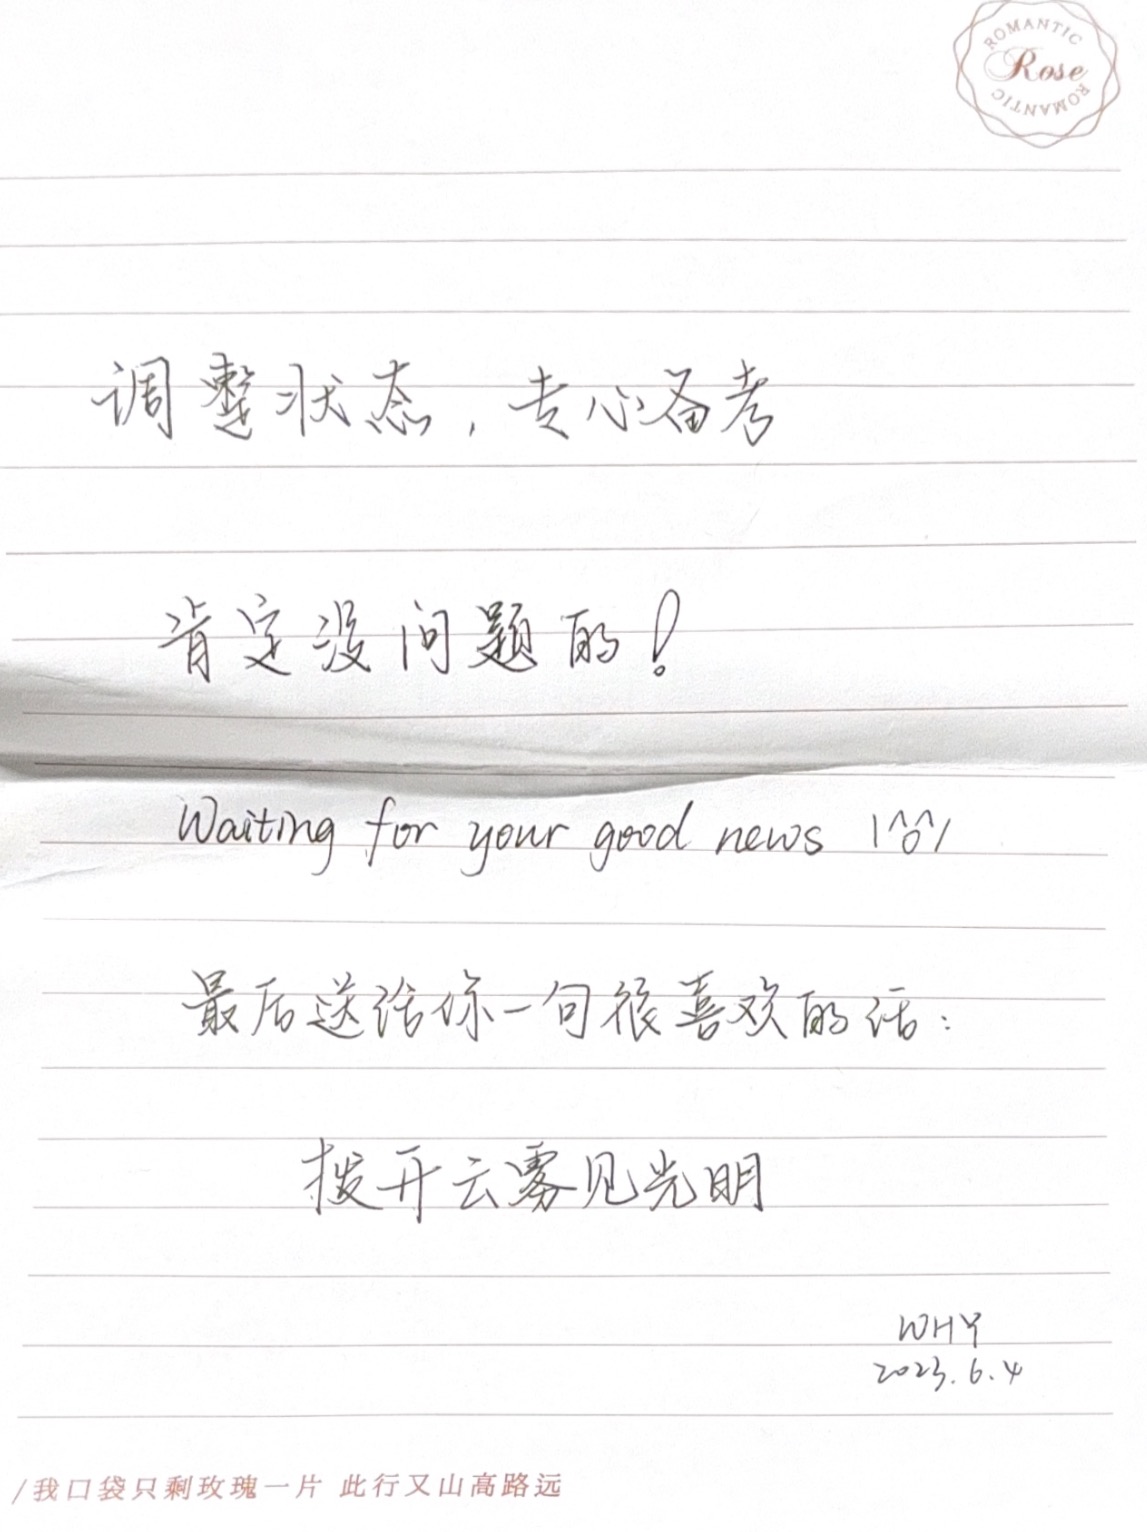 ROMANTIC
Rose
ROMANTIC
调整状态，专心备考
肯定没问题的！
Waiting for your good news \^o^/
最后送给你一句很喜欢的话：
拨开云雾见光明
WHY
2023.6.4
/我口袋只剩玫瑰一片 此行又山高路远